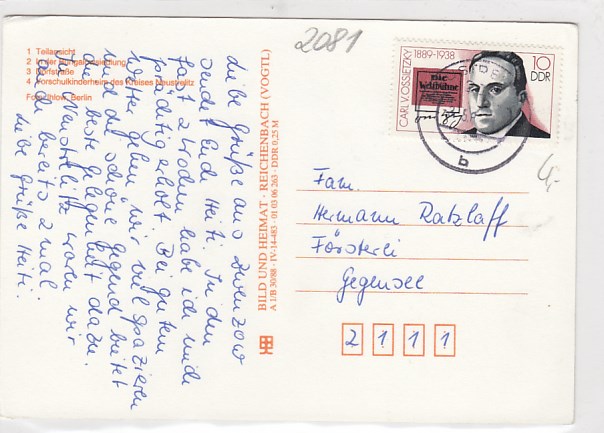 2081
1 Teilansicht
2 in der Bungalowsiedlung
3 Dorfstraße
4 Vorschulkinderheim des Kreises Neustrelitz
Foto: Ihlow, Berlin
Liebe Grüße aus Zwenzow
sendet Euch Heiti. In den
fast 2 Wochen habe ich mich
prächtig erholt. Bei gutem
Wetter gehen wir viel spazieren
und die schöne Gegend bietet
die beste Gelegenheit dazu.
In Neustrelitz waren wir
auch bereits 2 mal.
Liebe Grüße Heiti.
BILD UND HEIMAT · REICHENBACH (VOGTL)
A 1/B 30/88 · IV-14-483 · 01 03 06 263 · DDR 0,25 M
CARL V. OSSIETZKY
1889-1938
Die
Weltbühne
10
DDR
b
4,-
Fam.
Hermann Ratzlaff
Försterei
Gegensee
2 1 1 1